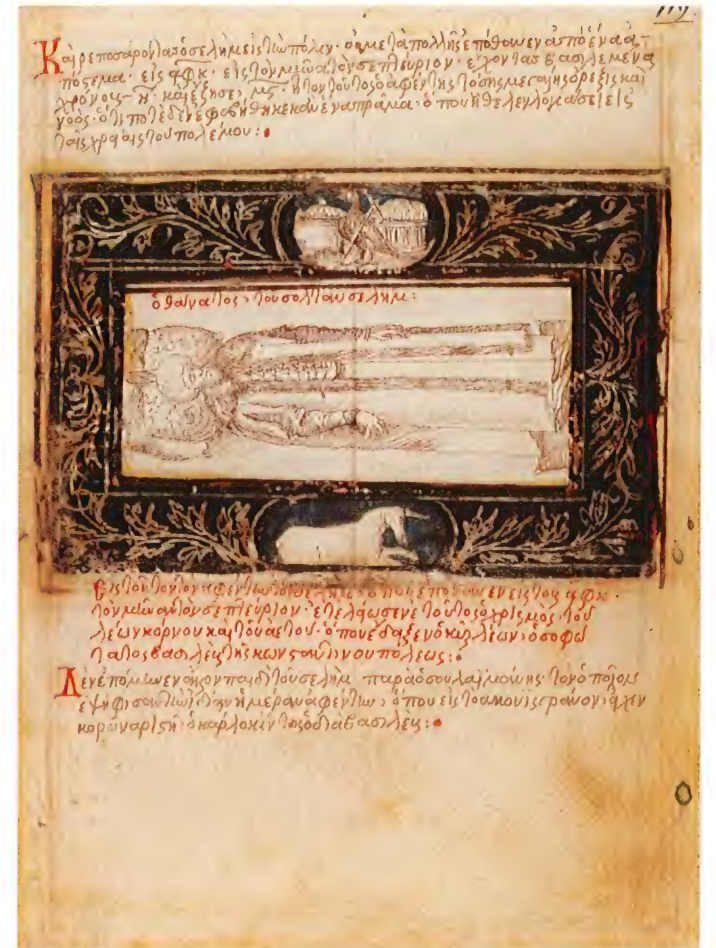 119
Καὶ ἐπὀσαρον τα ὁ σελήμ εἰς τὴν πόλιν · ὀλίμε τα πολλῆς ἐπόθανεν ἀπὸ ἕνα ἀ-
πόστεμα · εἰς αφκ · εἰς τὸν μῆνα τὸν σεπτέυριον · ἔχοντας βασιλεμένα
χρόνους η · καὶ ἔζησε μϛ · ἦτον τοῦτος ὁ ἀφέντης τόσης μεγάλης ὄρεξις καὶ
νοός · ὅτι ποτὲ δὲν ἐφοβήθηκε κανένα πρᾶμα · ὁποῦ ἤθελεν λογιάσει εἰς
ταῖς χρείαις τοῦ πολέμου :
ὁ θάνατος τοῦ σουλτὰν σελήμ :
Εἰς τοῦτον τὸν ἀφέντη τὸ σελήμ · ὁποῦ ἐπόθανεν εἰς τοὺς αφκ ·
τὸν μῆναν τὸν σεπτέυριον · ἐτελείωσεν ἐτοῦτος ὁ χρισμὸς · τοῦ
λέωνκόρνου καὶ τοῦ ἀετοῦ · ὁποῦ ἐδιάξεν ὁ κὺρ λέων · ὁ σοφώ
τατος βασιλεὺς τῆς κωνσταντίνου πόλεως :
Δὲν ἐπόμεινεν ἄλλον παιδὶ τοῦ σελήμ παρὰ ὁ σουλαϊμάνης · τὸν ὁποῖον
ἐψήφισαν τὴν ἰδίαν ἡμέραν ἀφέντην · ὁποῦ εἰς τὸ ἀκουίσγρανον · ἤχεν
κορωναρισθῆ ὁ κάρλο κίντος διὰ βασιλεὺς :